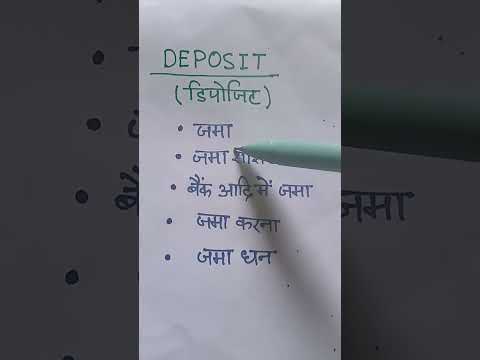 DEPOSIT
(डिपोजिट)
• जमा
• जमा
• बैंक आदि में जमा
• जमा करना
• जमा धन